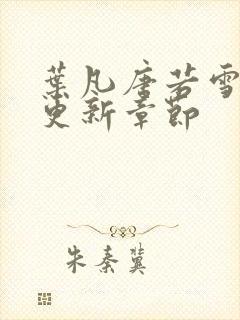 葉凡唐若雪
更新章節
朱秦冀